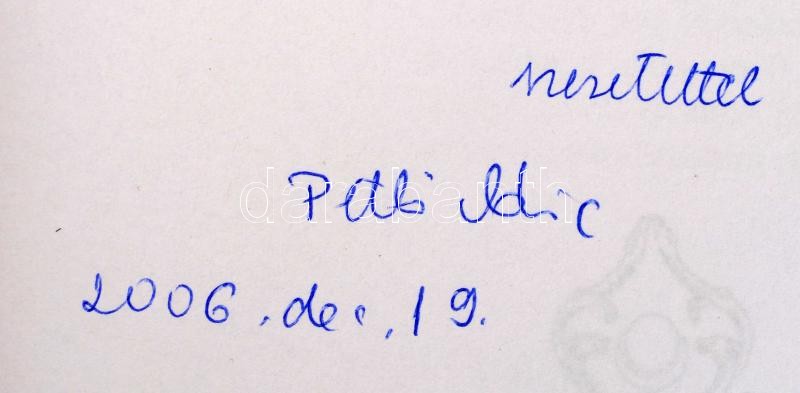 szeretettel
Pethő
2006. dec. 19.
darabanth